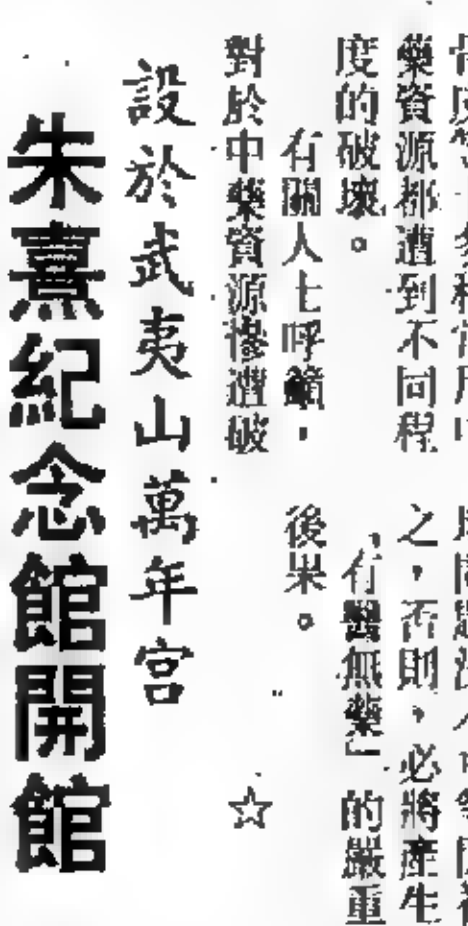 藥資源都遭到不同程
度的破壞。
有關人士呼籲，
對於中藥資源慘遭破
之，否則，必將產生
「有醫無藥」的嚴重
後果。
☆
設於武夷山萬年宮
朱熹紀念館開館